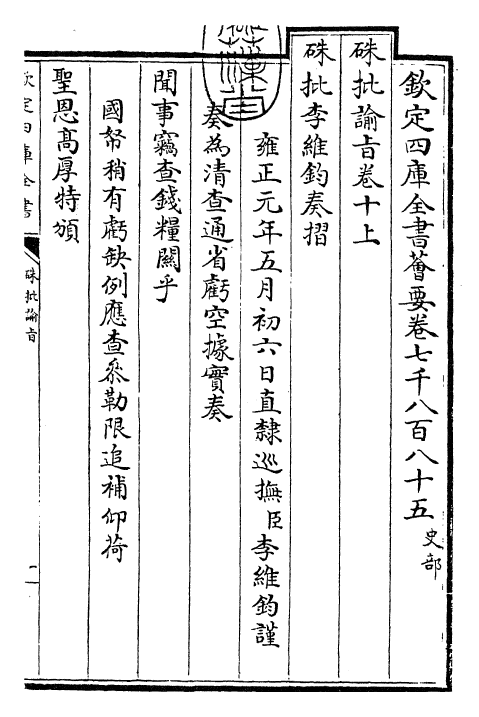 欽定四庫全書薈要卷七千八百八十五 史部
硃批諭旨卷十上
硃批李維鈞奏摺
雍正元年五月初六日直隸巡撫臣李維鈞謹
奏為清查通省虧空據實奏
聞事竊查錢糧關乎
國帑稍有虧缺例應查叅勒限追補仰荷
聖恩高厚特頒
欽定四庫全書
硃批諭旨
一